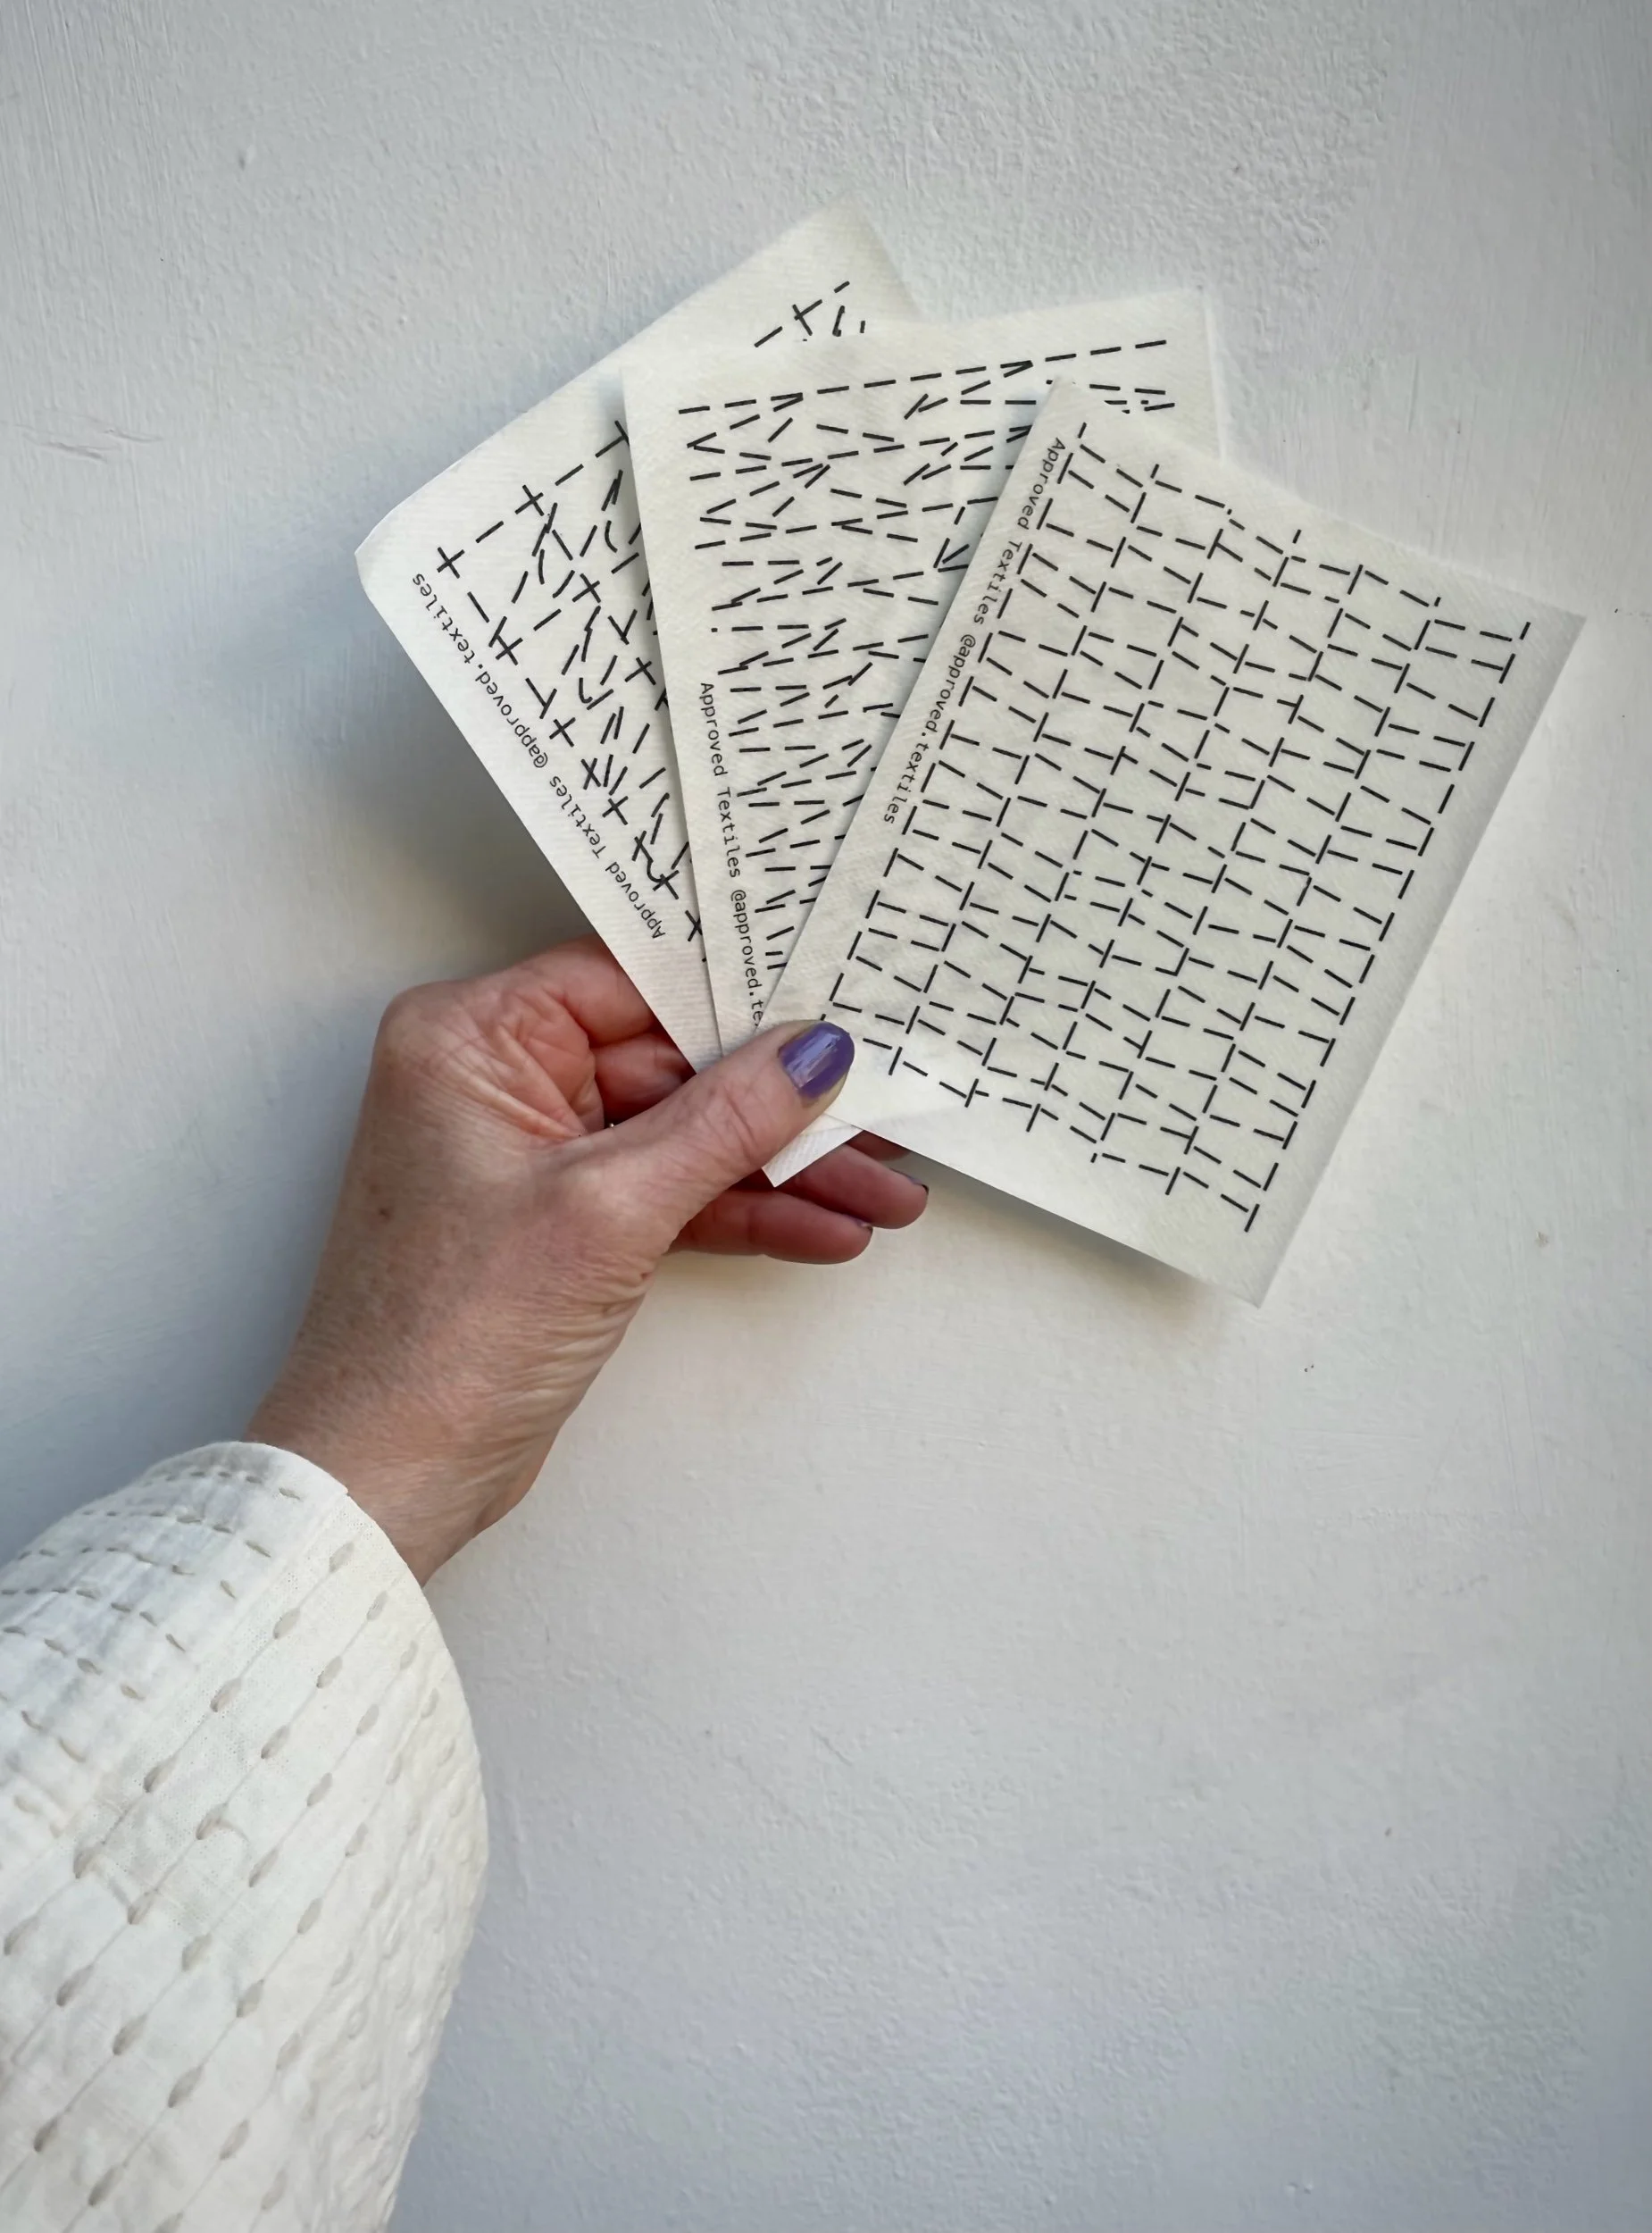 Approved Textiles @approved.textiles
Approved Textiles @approved.te
Approved Textiles @approved.textiles